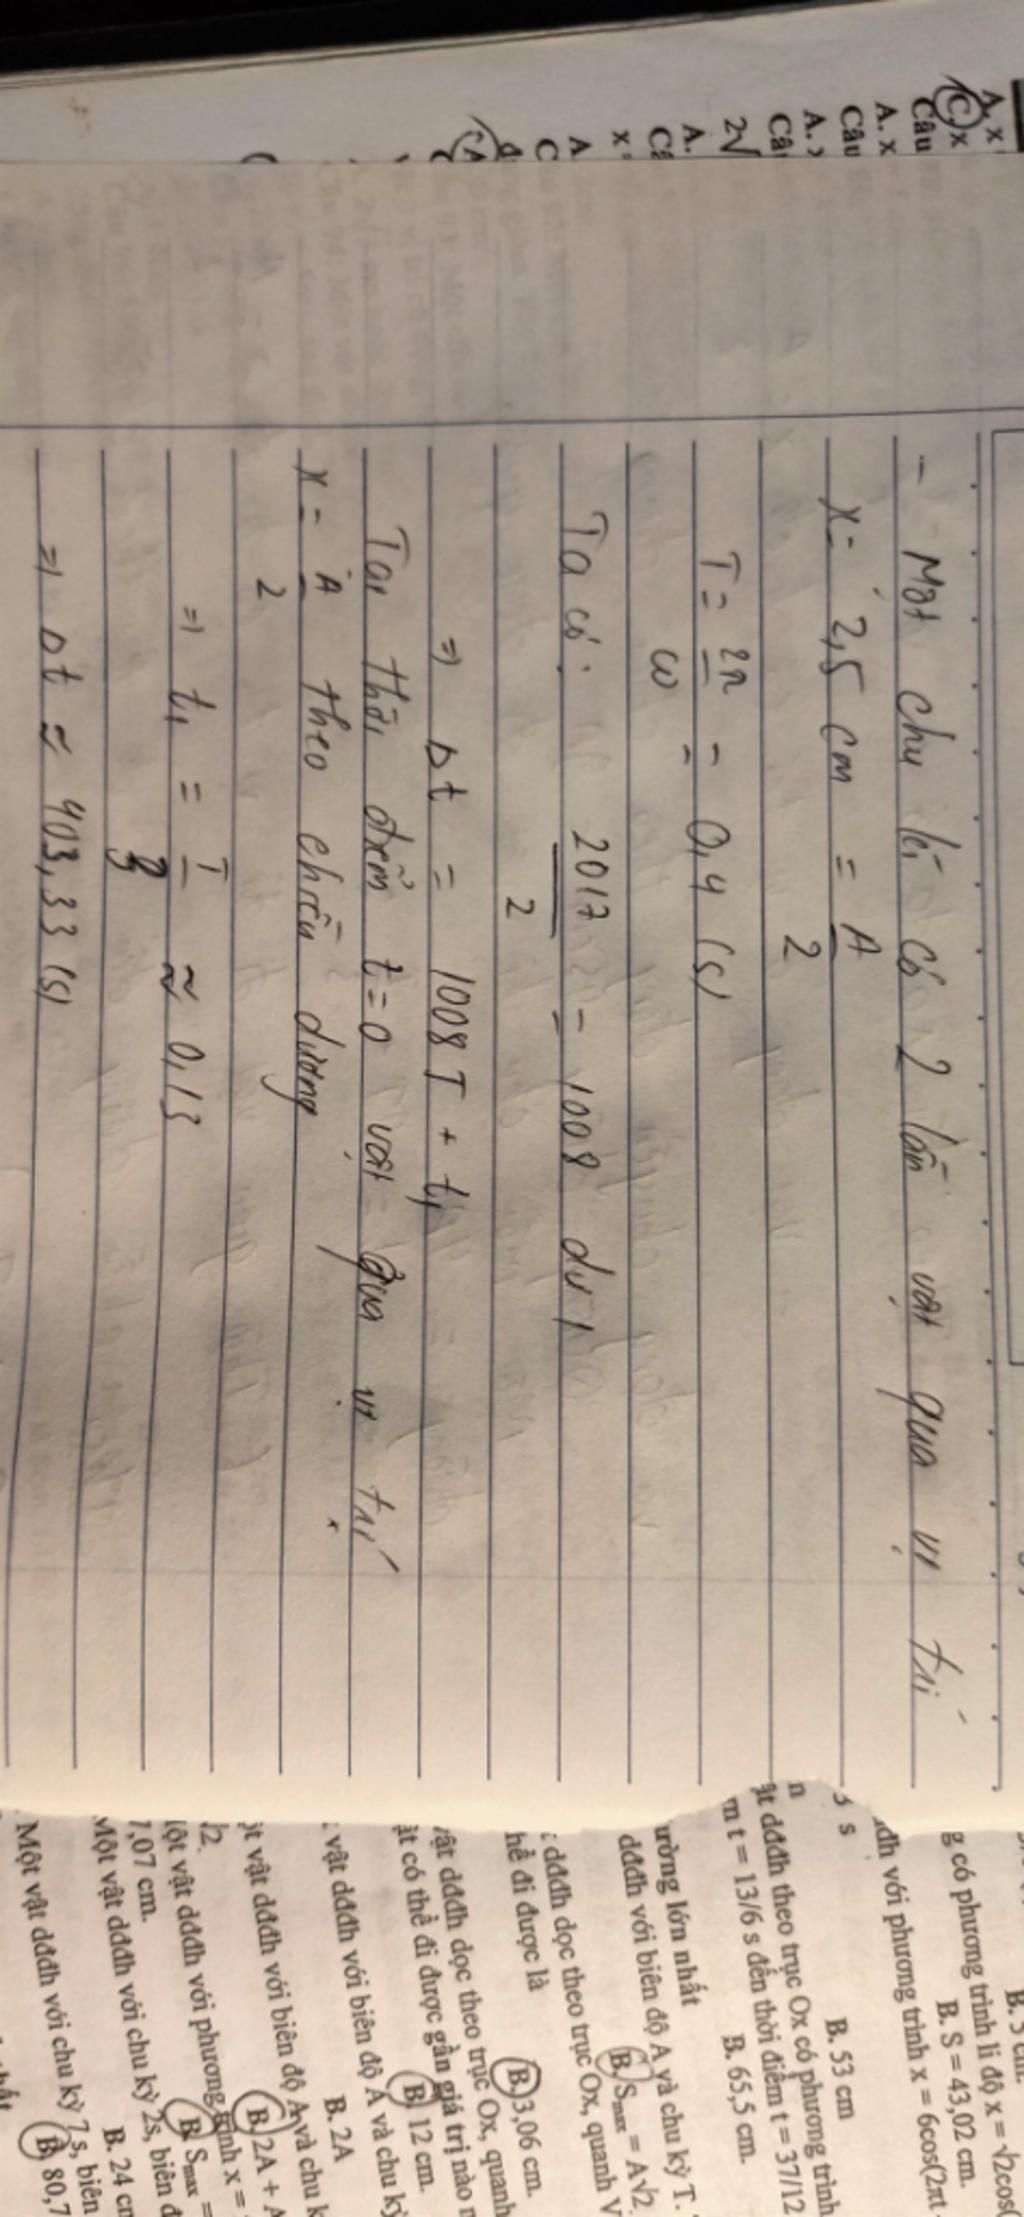 A. x
C. x
Câu
A. x
Câu
A.
Câ
2√
A.
x
A
C
- Một chu kì có 2 lần vật qua vị trí
x = 2,5 cm = A/2
T = 2π/ω = 0,4 (s)
Ta có: 2017/2 = 1008 dư 1
=> Δt = 1008T + t₁
Tại thời điểm t=0 vật qua vị trí
x = A/2 theo chiều dương
=> t₁ = T/3 ≈ 0,13
=> Δt ≈ 403,33 (s)
B. 5 cm.
g có phương trình li độ x = √2cos(
B. S = 43,02 cm.
dh với phương trình x = 6cos(2πt
s
B. 53 cm
n
ật dđđh theo trục Ox có phương trình
m t = 13/6 s đến thời điểm t = 37/12
B. 65,5 cm.
ường lớn nhất
dđđh với biên độ A và chu kỳ T.
B. Smax = A√2
dđđh dọc theo trục Ox, quanh V
hể đi được là
B. 3,06 cm.
vật dđđh dọc theo trục Ox, quanh
ật có thể đi được gần giá trị nào n
B. 12 cm.
vật dđđh với biên độ A và chu kỳ
B. 2A
ột vật dđđh với biên độ A và chu k
√2.
B. 2A + A
Một vật dđđh với phương trình x =
7,07 cm.
B. Smax =
Một vật dđđh với chu kỳ 2s, biên đ
B. 24 cm
Một vật dđđh với chu kỳ 7s, biên
B. 80,7